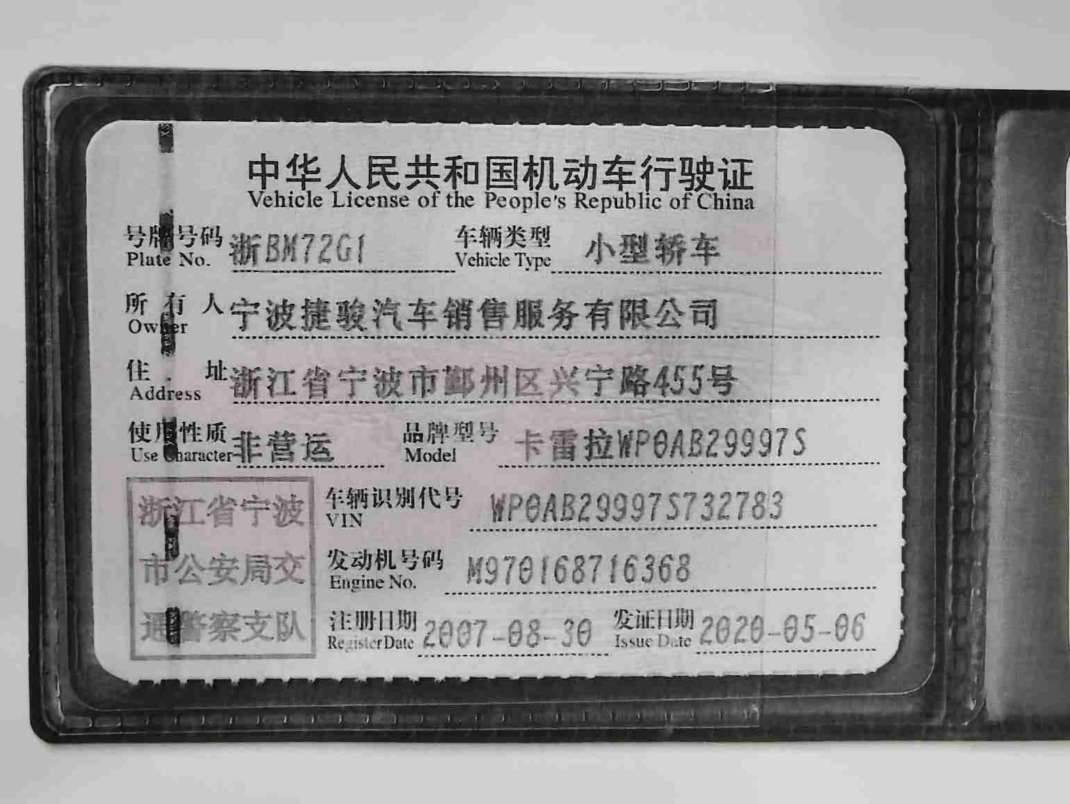 中华人民共和国机动车行驶证
Vehicle License of the People's Republic of China
号牌号码 浙BM72G1 车辆类型 小型轿车
Plate No. Vehicle Type
所有人 宁波捷骏汽车销售服务有限公司
Owner
住址 浙江省宁波市鄞州区兴宁路455号
Address
使用性质 非营运 品牌型号 卡雷拉WP0AB29997S
Use Character Model
浙江省宁波 车辆识别代号 WP0AB29997S732783
VIN
市公安局交 发动机号码 M970168716368
Engine No.
通警察支队 注册日期 2007-08-30 发证日期 2020-05-06
Register Date Issue Date